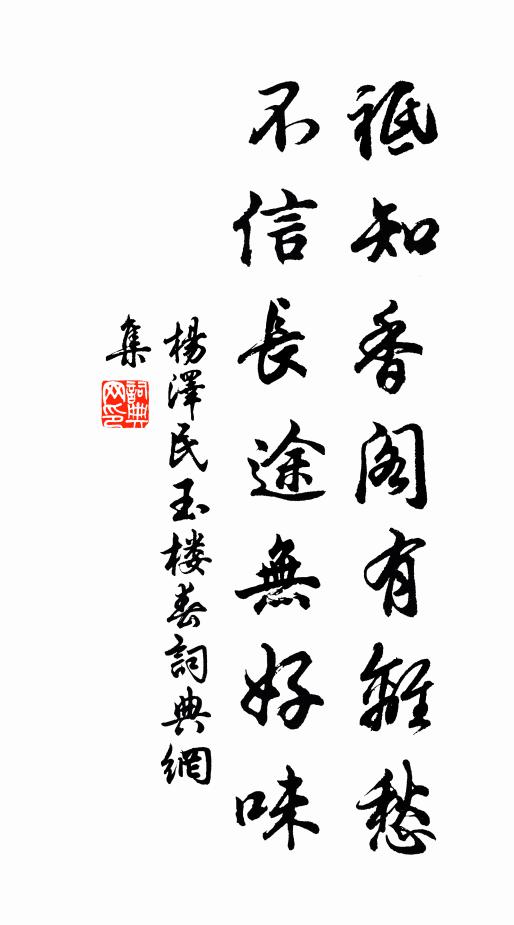 祗知香阁有離愁
不信長途無好味
楊澤民玉楼春詞典網
集
詞典
网印